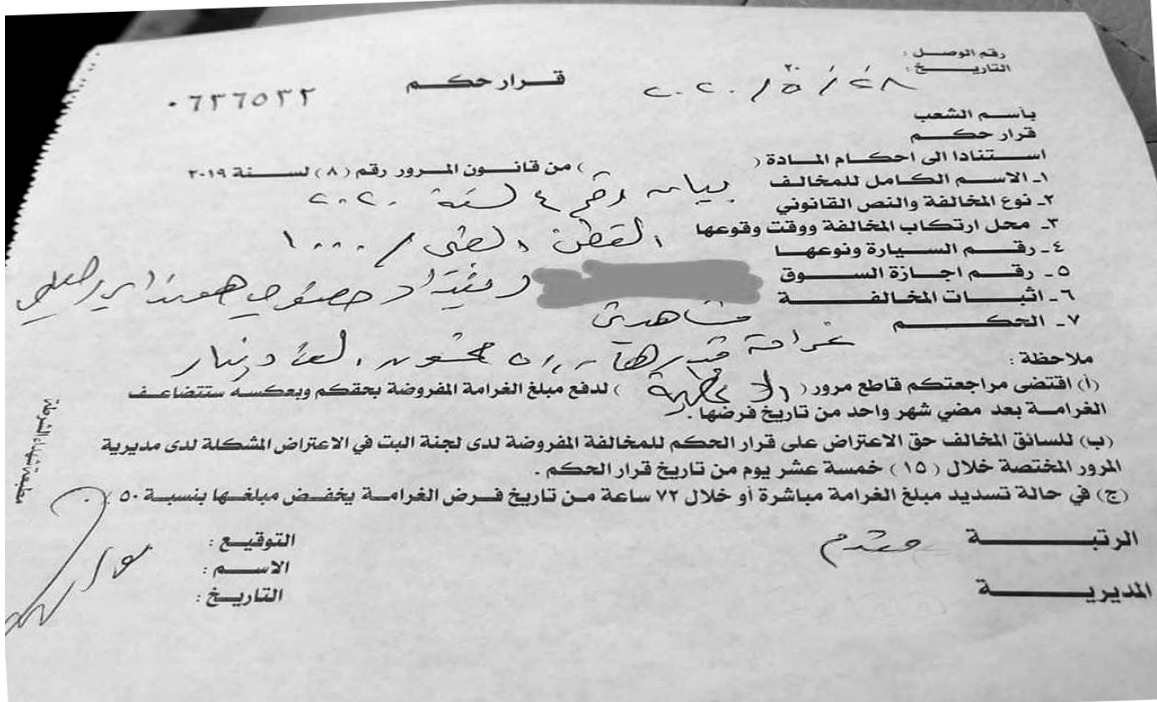 رقم الوصل :
التاريخ : ٢٠
٢٠٢٠/٥/٢٨
قرار حكم
٠٦٣٦٥٣٣
بأسم الشعب
قرار حكم
استنادا الى احكام المادة ( ) من قانون المرور رقم (٨) لسنة ٢٠١٩
١ـ الاسم الكامل للمخالف
٢ـ نوع المخالفة والنص القانوني بيان رقم ٤ لسنة ٢٠٢٠
٣ـ محل ارتكاب المخالفة ووقت وقوعها / ١٠٠٠
٤ـ رقم السيارة ونوعها
٥ـ رقم اجازة السوق بغداد خصوصي
٦ـ اثبات المخالفة مشاهدتي
٧ـ الحكم غرامة قدرها الف دينار
ملاحظة :
(أ) اقتضى مراجعتكم قاطع مرور ( ) لدفع مبلغ الغرامة المفروضة بحقكم وبعكسه ستتضاعف
الغرامة بعد مضي شهر واحد من تاريخ فرضها .
(ب) للسائق المخالف حق الاعتراض على قرار الحكم للمخالفة المفروضة لدى لجنة البت في الاعتراض المشكلة لدى مديرية
المرور المختصة خلال (١٥) خمسة عشر يوم من تاريخ قرار الحكم .
(ج) في حالة تسديد مبلغ الغرامة مباشرة أو خلال ٧٢ ساعة من تاريخ فرض الغرامة يخفض مبلغها بنسبة ٥٠٪ .
الرتبة مقدم
المديرية
التوقيع :
الاسم :
التاريخ :
مطبعة شهداء الشرطة